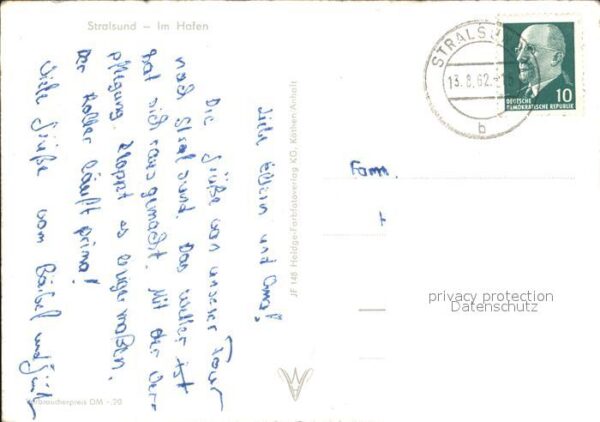 Stralsund – Im Hafen
Liebe Eltern und Oma!
Die Grüße von unserer Tour
nach Stralsund. Das Wetter ist
hat sich rausgemacht. Mit der Ver-
pflegung klappt es einigermaßen.
Der Roller läuft prima!
Viele Grüße vom Bärbel und
Verbraucherpreis DM -.20
JF 148 Heldge-Farbfotoverlag KG, Köthen-Anhalt
STRALSUND
13.8.62
b
10
DEUTSCHE
DEMOKRATISCHE REPUBLIK
Fam.
privacy protection
Datenschutz